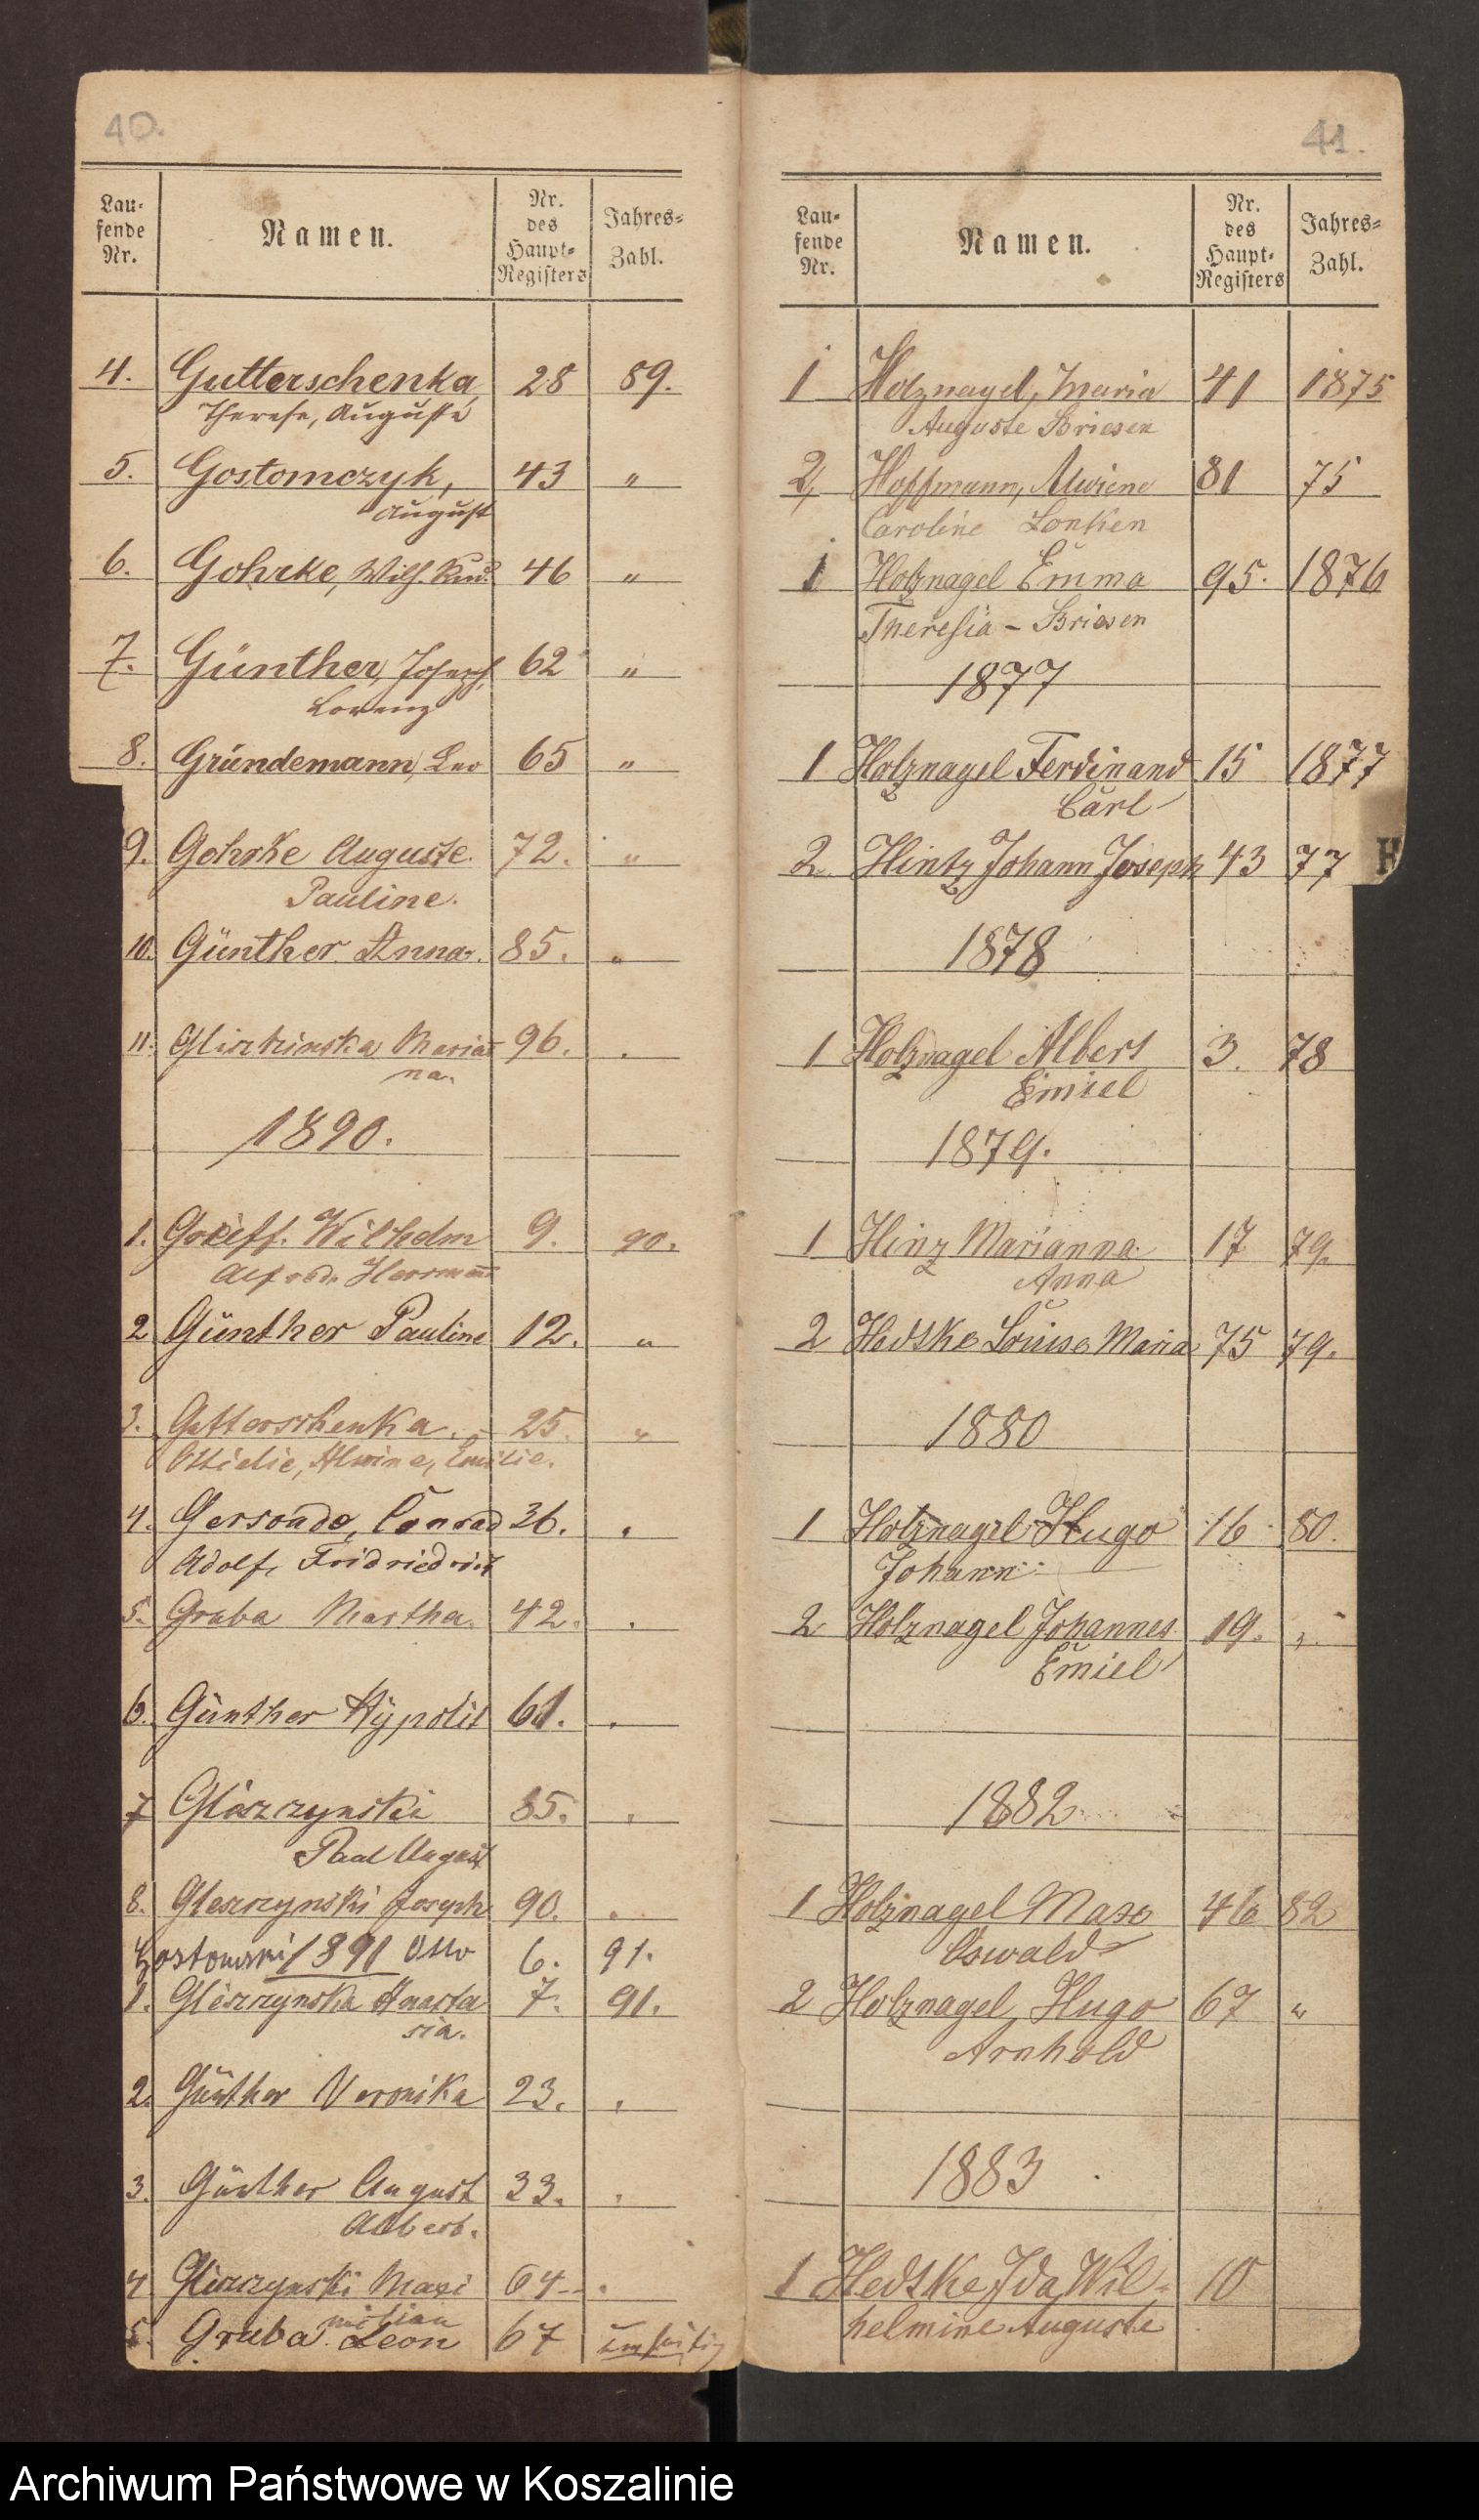 40.
Lau-
fende
Nr.
Namen.
Nr.
des
Haupt-
Registers
Jahres-
Zahl.
4. Gutterschenka, 28 89.
Therese, Auguste
5. Gostomczyk, 43 "
August
6. Gohrke, Wilh. 46 "
7. Günther, Joseph, 62 "
Lorenz
8. Gründemann, Leo 65 "
9. Gohrke Auguste. 72. "
Pauline.
10. Günther Anna. 85. "
11. Marian 96. .
na.
1890.
1. Wilhelm 9. 90.
Alfred. Herrmann
2 Günther Pauline 12. "
3. Gutterschenka. 25. "
Ottielie, Alwine, Emilie.
4. Gersonde, Conrad 36. .
Adolf, Fridriedrich
5. Gruba Martha. 42. .
6. Günther Hÿpolit 61. .
7 Gliszczynski 85. .
Paul August
8. Gleszczynski Joseph 90. .
Gostomski 1891 Otto 6. 91.
1. Gleszczynska Anasta 7. 91.
sia.
2. Günther Veronika 23. .
3. Günther August 33. .
Albert.
4 Gliszczynski Maxi 64 .
milian
5. Gruba Leon 67
41.
Lau-
fende
Nr.
Namen.
Nr.
des
Haupt-
Registers
Jahres-
Zahl.
1 Holznagel, Maria 41 1875
Auguste Briesen
2, Hoffmann, Alwiene 81 75
Caroline Lonken
1 Holznagel Emma 95. 1876
Theresia - Briesen
1877
1 Holznagel Ferdinand 15 1877
Carl
2 Hintz Johann Joseph 43 77
H
1878
1 Holznagel Albert 3. 78
Emiel
1879.
1 Hinz Marianna 17 79.
Anna
2 Hedtke Louise Maria 75 79.
1880
1 Holznagel Hugo 16 80.
Johann
2 Holznagel Johannes 19. "
Emiel
1882
1 Holznagel Max 46 82
Oswald
2 Holznagel Hugo 67 "
Arnhold
1883
1 Hedtke Ida Wil- 10
helmine Auguste
Archiwum Państwowe w Koszalinie